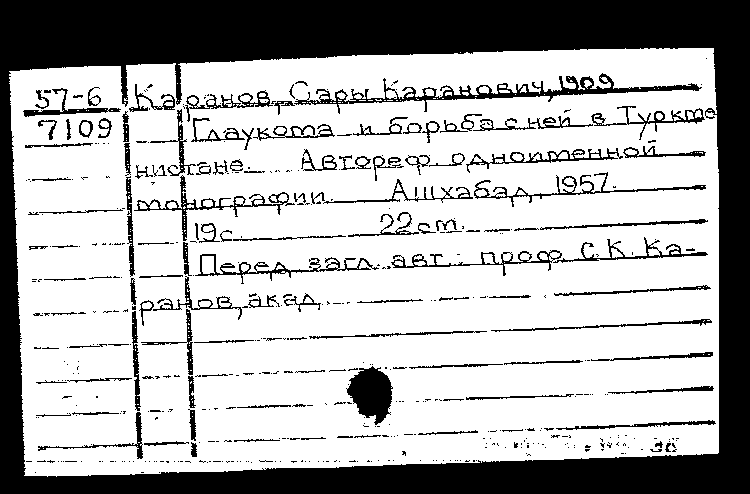 57-6 Каранов, Сары Каранович, 1909
7109 Глаукома и борьба с ней в Туркме
нистане. Автореф. одноименной
монографии. Ашхабад, 1957.
19с. 22cm.
Перед загл. авт.: проф. С.К. Ка-
ранов, акад.